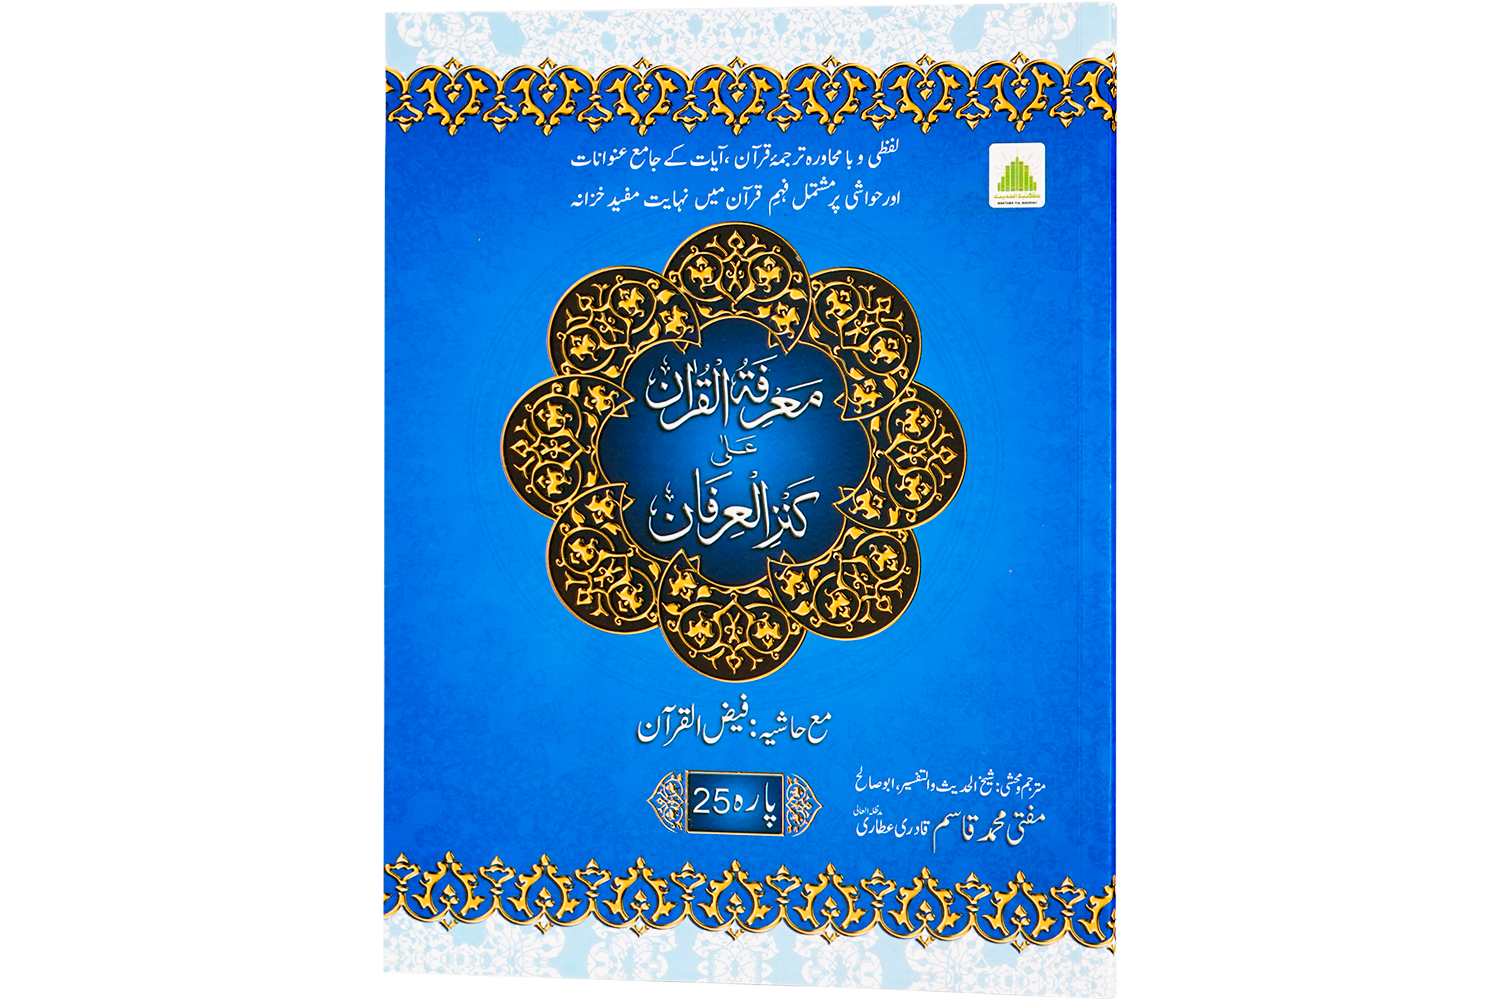 لفظی و بامحاورہ ترجمۂ قرآن، آیات کے جامع عنوانات
اور حواشی پر مشتمل فہمِ قرآن میں نہایت مفید خزانہ
مَعْرِفَۃُ الْقُرْاٰن
عَلٰی
کَنْزِ الْعِرْفَان
مع حاشیہ: فیض القرآن
پارہ 25
مترجم و محشی: شیخ الحدیث والتفسیر، ابو صالح
مفتی محمد قاسم قادری عطاری مدظلہ العالی
MAKTABA TUL MADINAH